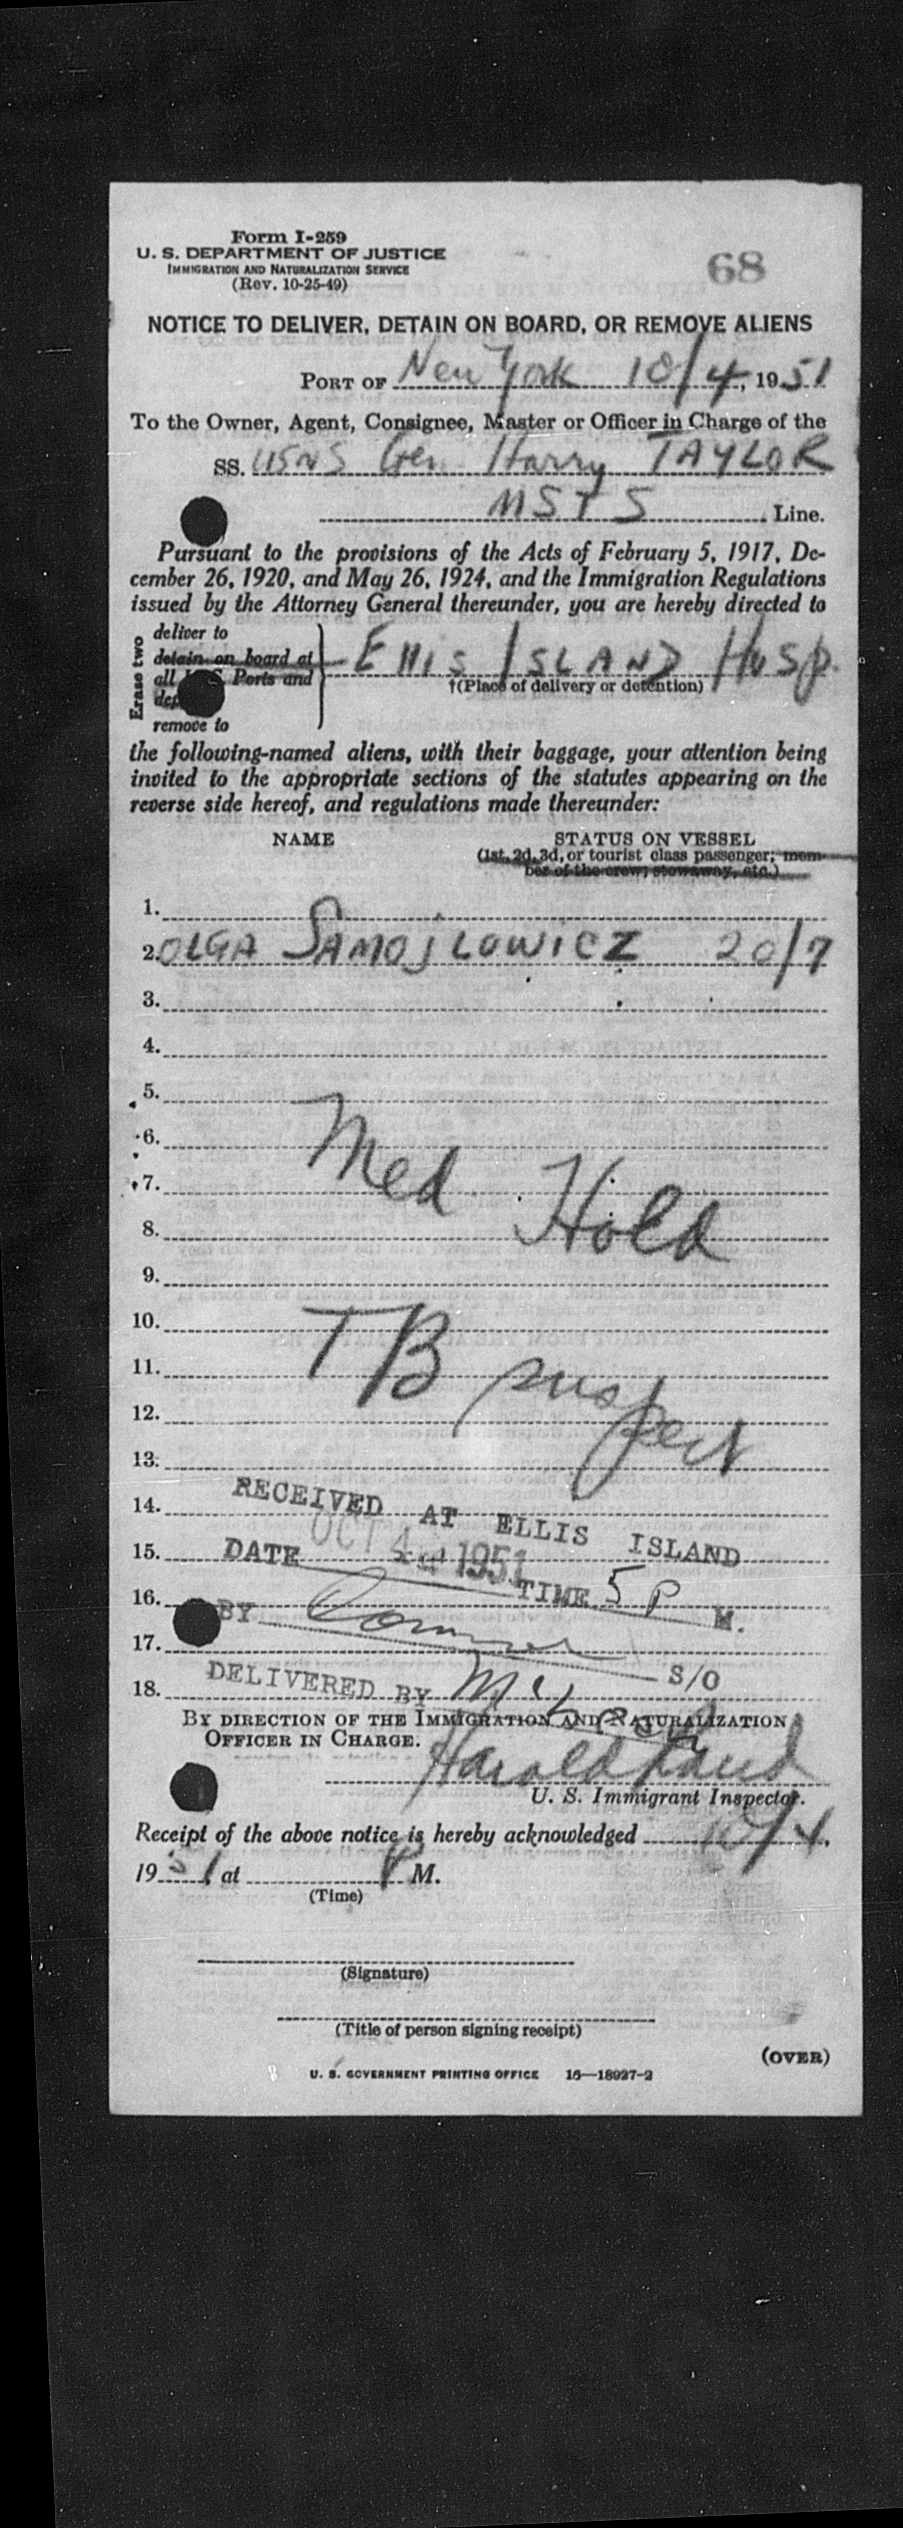 Form I-259
U. S. DEPARTMENT OF JUSTICE
IMMIGRATION AND NATURALIZATION SERVICE
(Rev. 10-25-49)
68
NOTICE TO DELIVER, DETAIN ON BOARD, OR REMOVE ALIENS
PORT OF New York 10/4, 1951
To the Owner, Agent, Consignee, Master or Officer in Charge of the
SS. USNS Gen Harry TAYLOR
MSTS Line.
Pursuant to the provisions of the Acts of February 5, 1917, De-
cember 26, 1920, and May 26, 1924, and the Immigration Regulations
issued by the Attorney General thereunder, you are hereby directed to
Erase two
deliver to
detain on board at
all U.S. Ports and
remove to
Ellis ISLAND Hosp.
†(Place of delivery or detention)
the following-named aliens, with their baggage, your attention being
invited to the appropriate sections of the statutes appearing on the
reverse side hereof, and regulations made thereunder:
NAME STATUS ON VESSEL
(1st, 2d, 3d, or tourist class passenger; mem-
ber of the crew; stowaway, etc.)
1.
2. OLGA SAMOJLOWICZ 20/7
3.
4.
5.
6.
7.
Med Hold
8.
9.
10.
11.
TB suspect
12.
13.
14.
RECEIVED AT ELLIS ISLAND
15.
DATE OCT 4 1951 TIME 5 P M.
16.
BY
17.
S/O
18.
DELIVERED BY
BY DIRECTION OF THE IMMIGRATION AND NATURALIZATION
OFFICER IN CHARGE.
Harold Rand
U. S. Immigrant Inspector.
Receipt of the above notice is hereby acknowledged 10/4,
1951 at P M.
(Time)
(Signature)
(Title of person signing receipt)
(OVER)
U. S. GOVERNMENT PRINTING OFFICE 16—18927-2